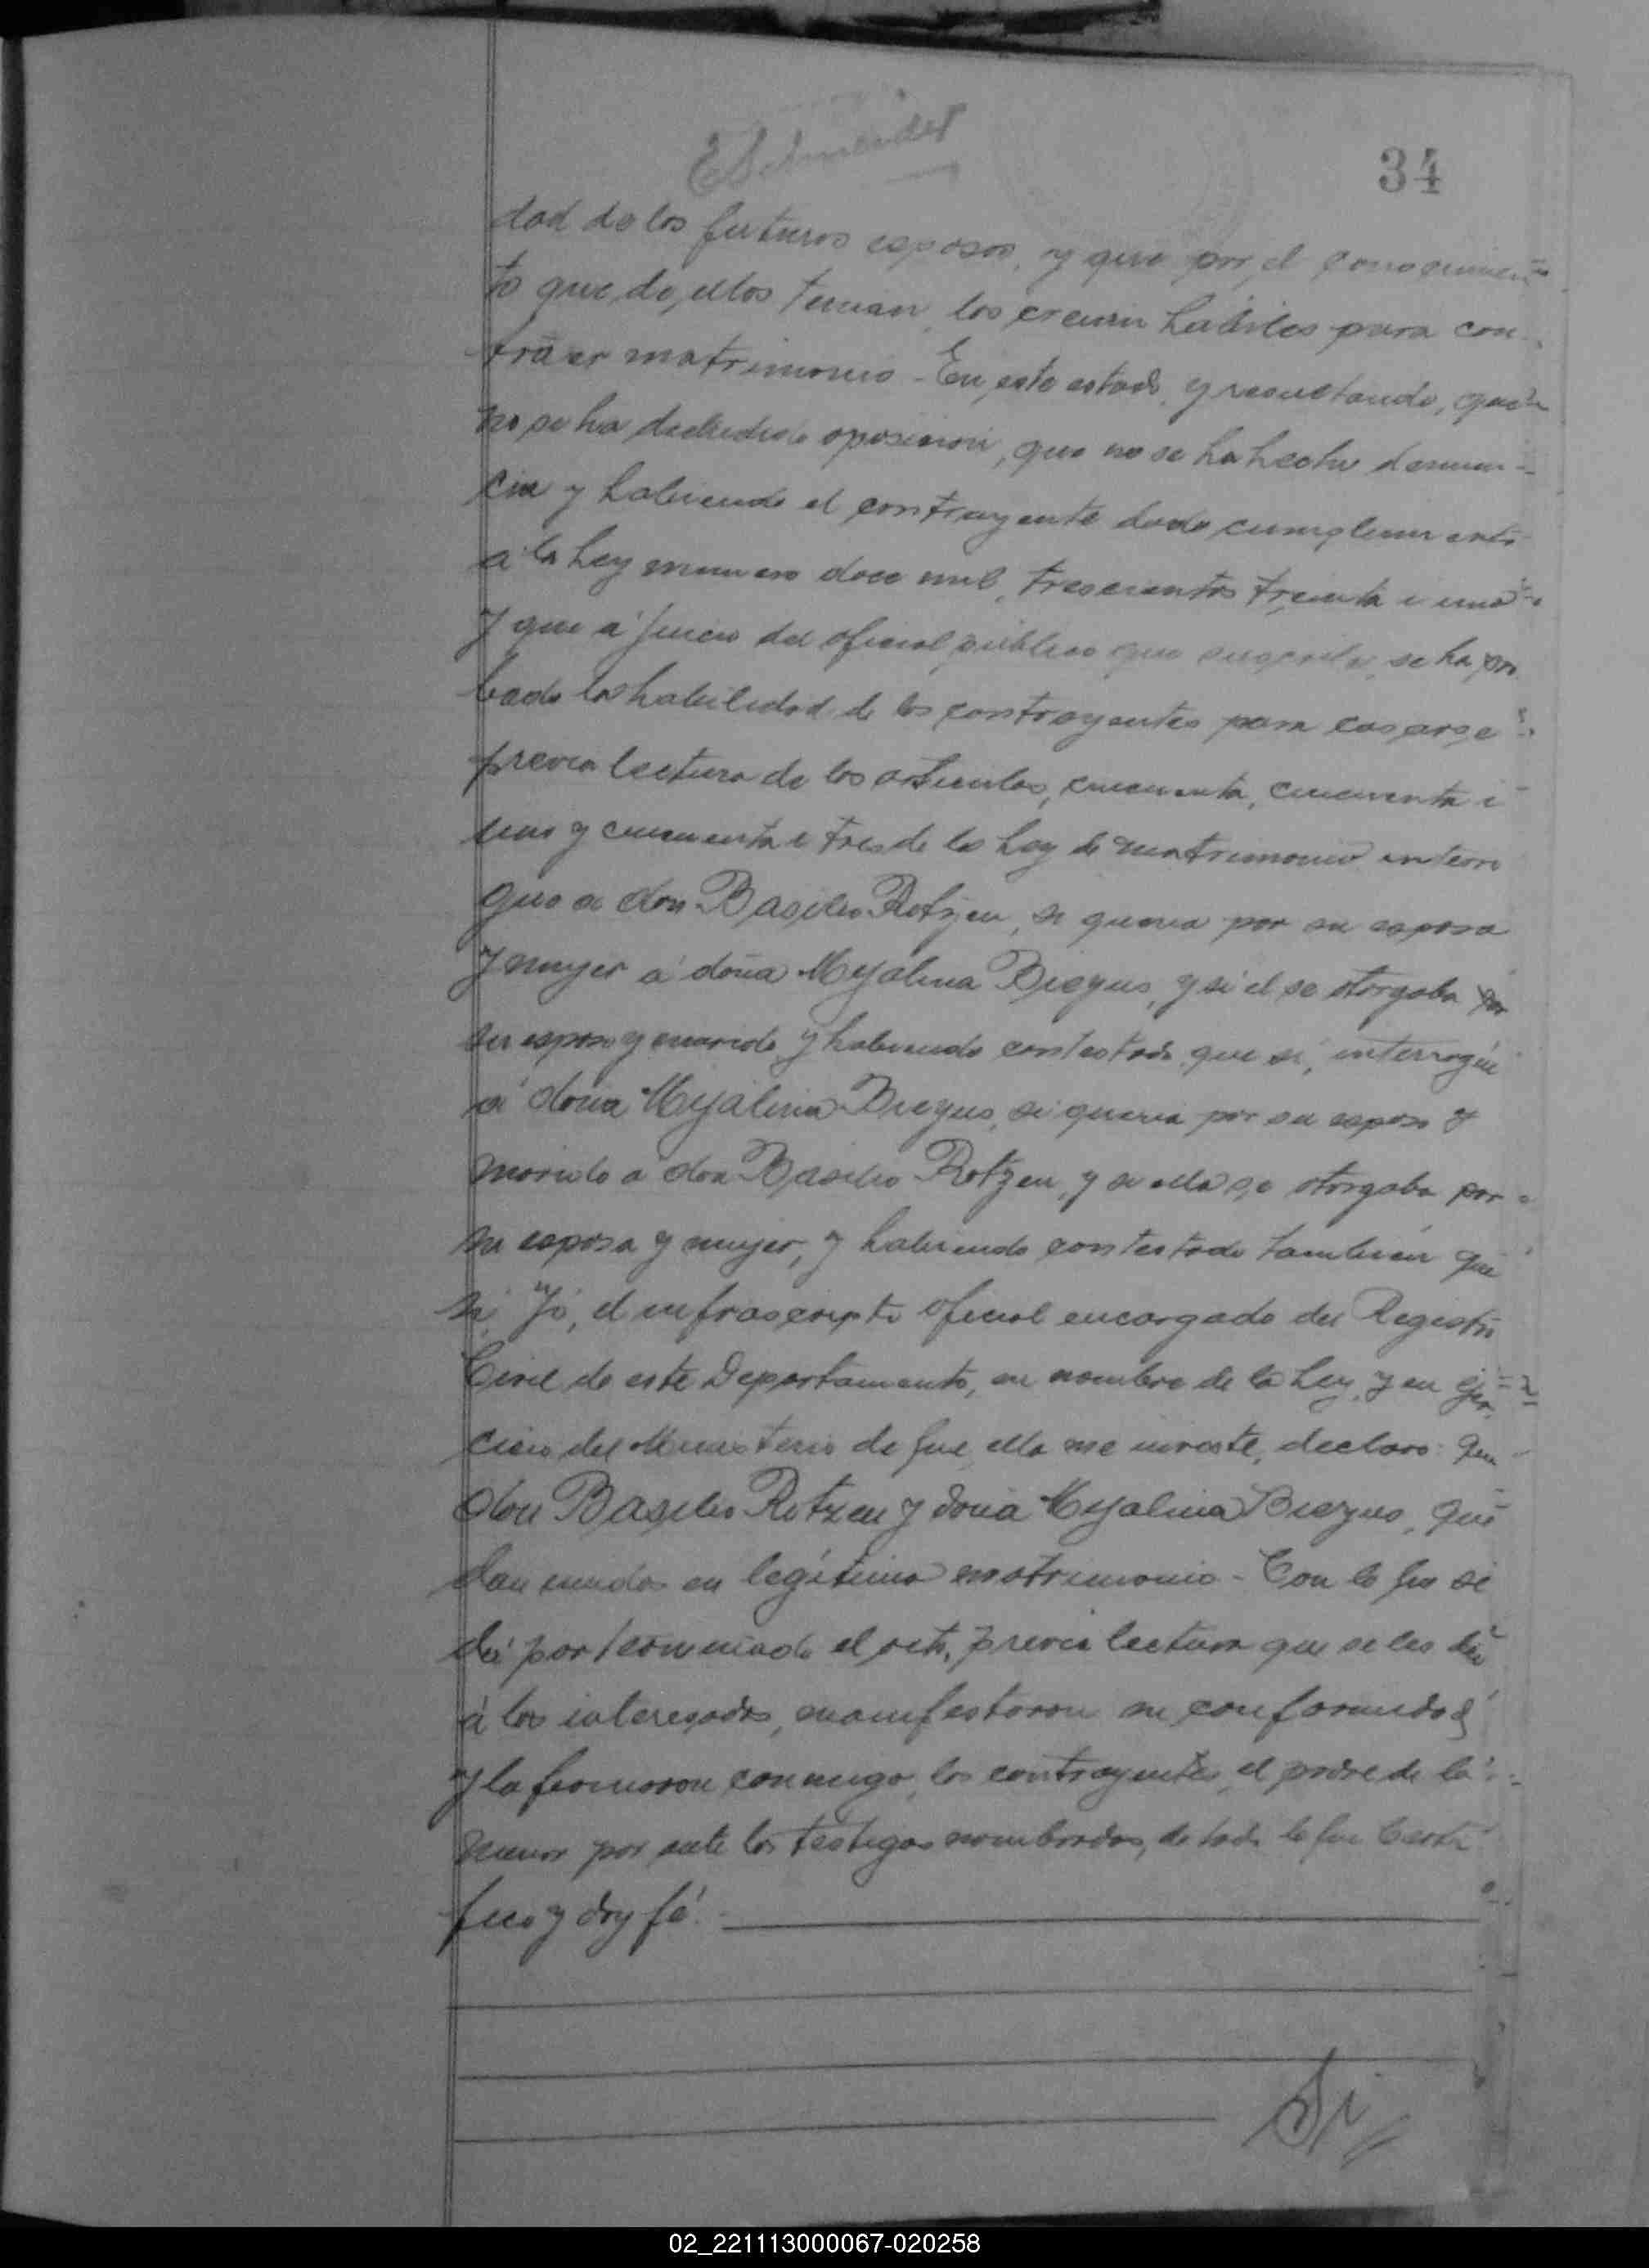 E Schneider
34
dad de los futuros esposos, y que por el conocimien-
to que de ellos tenian, los creian habiles para con-
traer matrimonio - En este estado, y resultando, que
no se ha deducido oposicion, que no se ha hecho denun-
cia y habiendo el contrayente dado cumplimiento
a la Ley numero doce mil, trescientos treinta i uno
y que a juicio del oficial publico que suscribe, se ha pro
bado la habilidad de los contrayentes para casarse
previa lectura de los articulos, cincuenta, cincuenta i
uno y cincuenta i tres de la Ley de matrimonio interro
gue a don Basilio Rotzen, si queria por su esposa
y mujer á doña Myalina Biegus, y si el se otorgaba por
su esposo y marido y habiendo contestado que si, interrogué
á doña Myalina Biegus, si queria por su esposo y
marido a don Basilio Rotzen, y si ella se otorgaba por
su esposa y mujer, y habiendo contestado tambien que
si, Yo, el infrascripto oficial encargado del Registro
Civil de este Departamento, en nombre de la Ley, y en ejer
cicio del Ministerio de que ella me inviste, declaro: Que
don Basilio Rotzen y doña Myalina Biegus, que
dan unidos en legitimo matrimonio - Con lo que se
dió por terminado el acto, previa lectura que se les dio
á los interesados, manifestaron su conformidad
y la firmaron conmigo, los contrayentes, el padre de la
menor por ante los testigos nombrados, de todo lo que Certi
fico y doy fé.
02_221113000067-020258